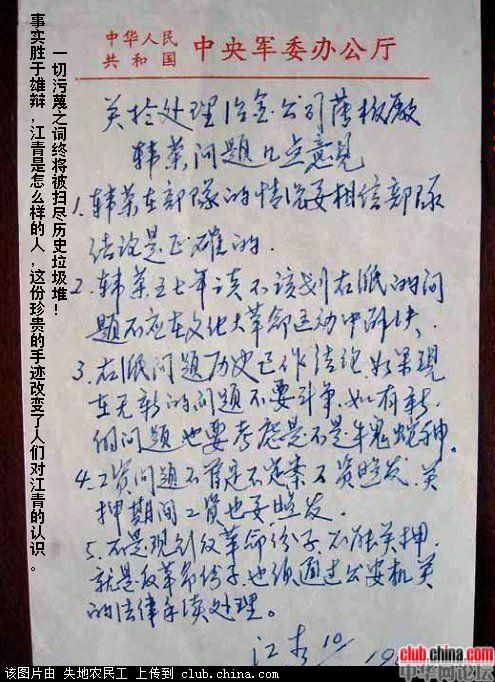 一切污蔑之词终将被扫尽历史垃圾堆！
事实胜于雄辩，江青是怎么样的人，这份珍贵的手迹改变了人们对江青的认识。
中华人民
共和国 中央军委办公厅
关于处理冶金公司薄板厰
韩荣问题几点意见
1. 韩荣在部隊的情况要相信部隊
结论是正確的.
2. 韩荣五七年该不该划右派的问
题不应在文化大革命运动中解决、
3. 右派问题历史已作结论.如果現
在无新的问题不要斗争,如有新
的问题也要考虑是不是牛鬼蛇神.
4. 工资问题不管定不定案工资照发.关
押期间工资也要照发.
5. 不是現刬反革命份子.不能关押.
就是反革命份子也须通过公安机关
的法律手续处理。
江青 10/
19
该图片由 失地农民工 上传到 club.china.com
club.china.com
中华网论坛